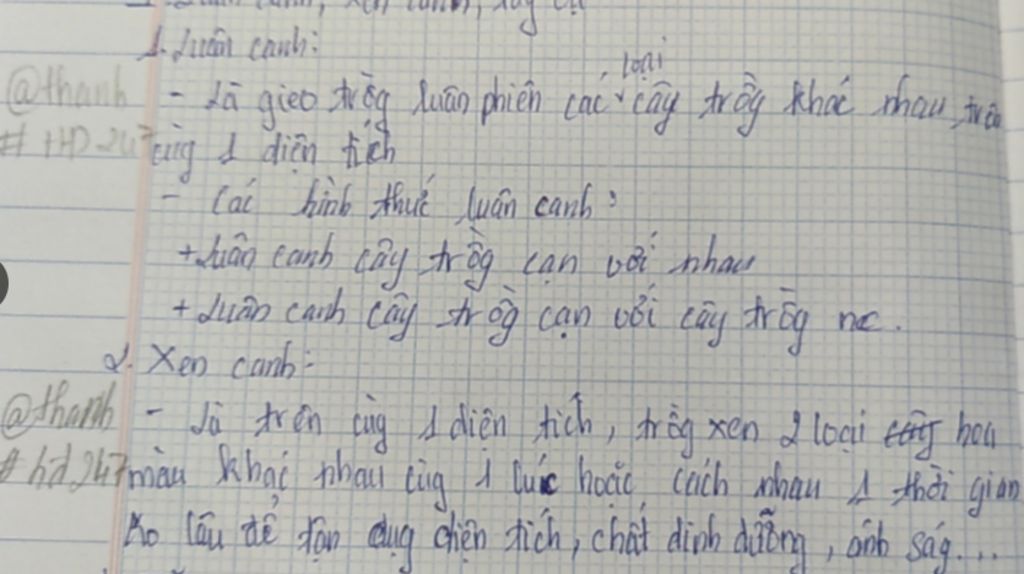 1. Luân canh:
loại
@thanh - Là gieo trồg luân phiên các cây trồg khác nhau trên
#HD247 cùg 1 diện tích
- Các hình thức luân canh:
+ Luân canh cây trồg cạn với nhau
+ Luân canh cây trồg cạn với cây trồg nc.
2. Xen canh:
@thanh - Là trên cùg 1 diện tích, trồg xen 2 loại hoa
#hd247 màu khác nhau cùg 1 lúc hoặc cách nhau 1 thời gian
ko lâu để tận dụg diện tích, chất dinh dưỡng, ánh ság...